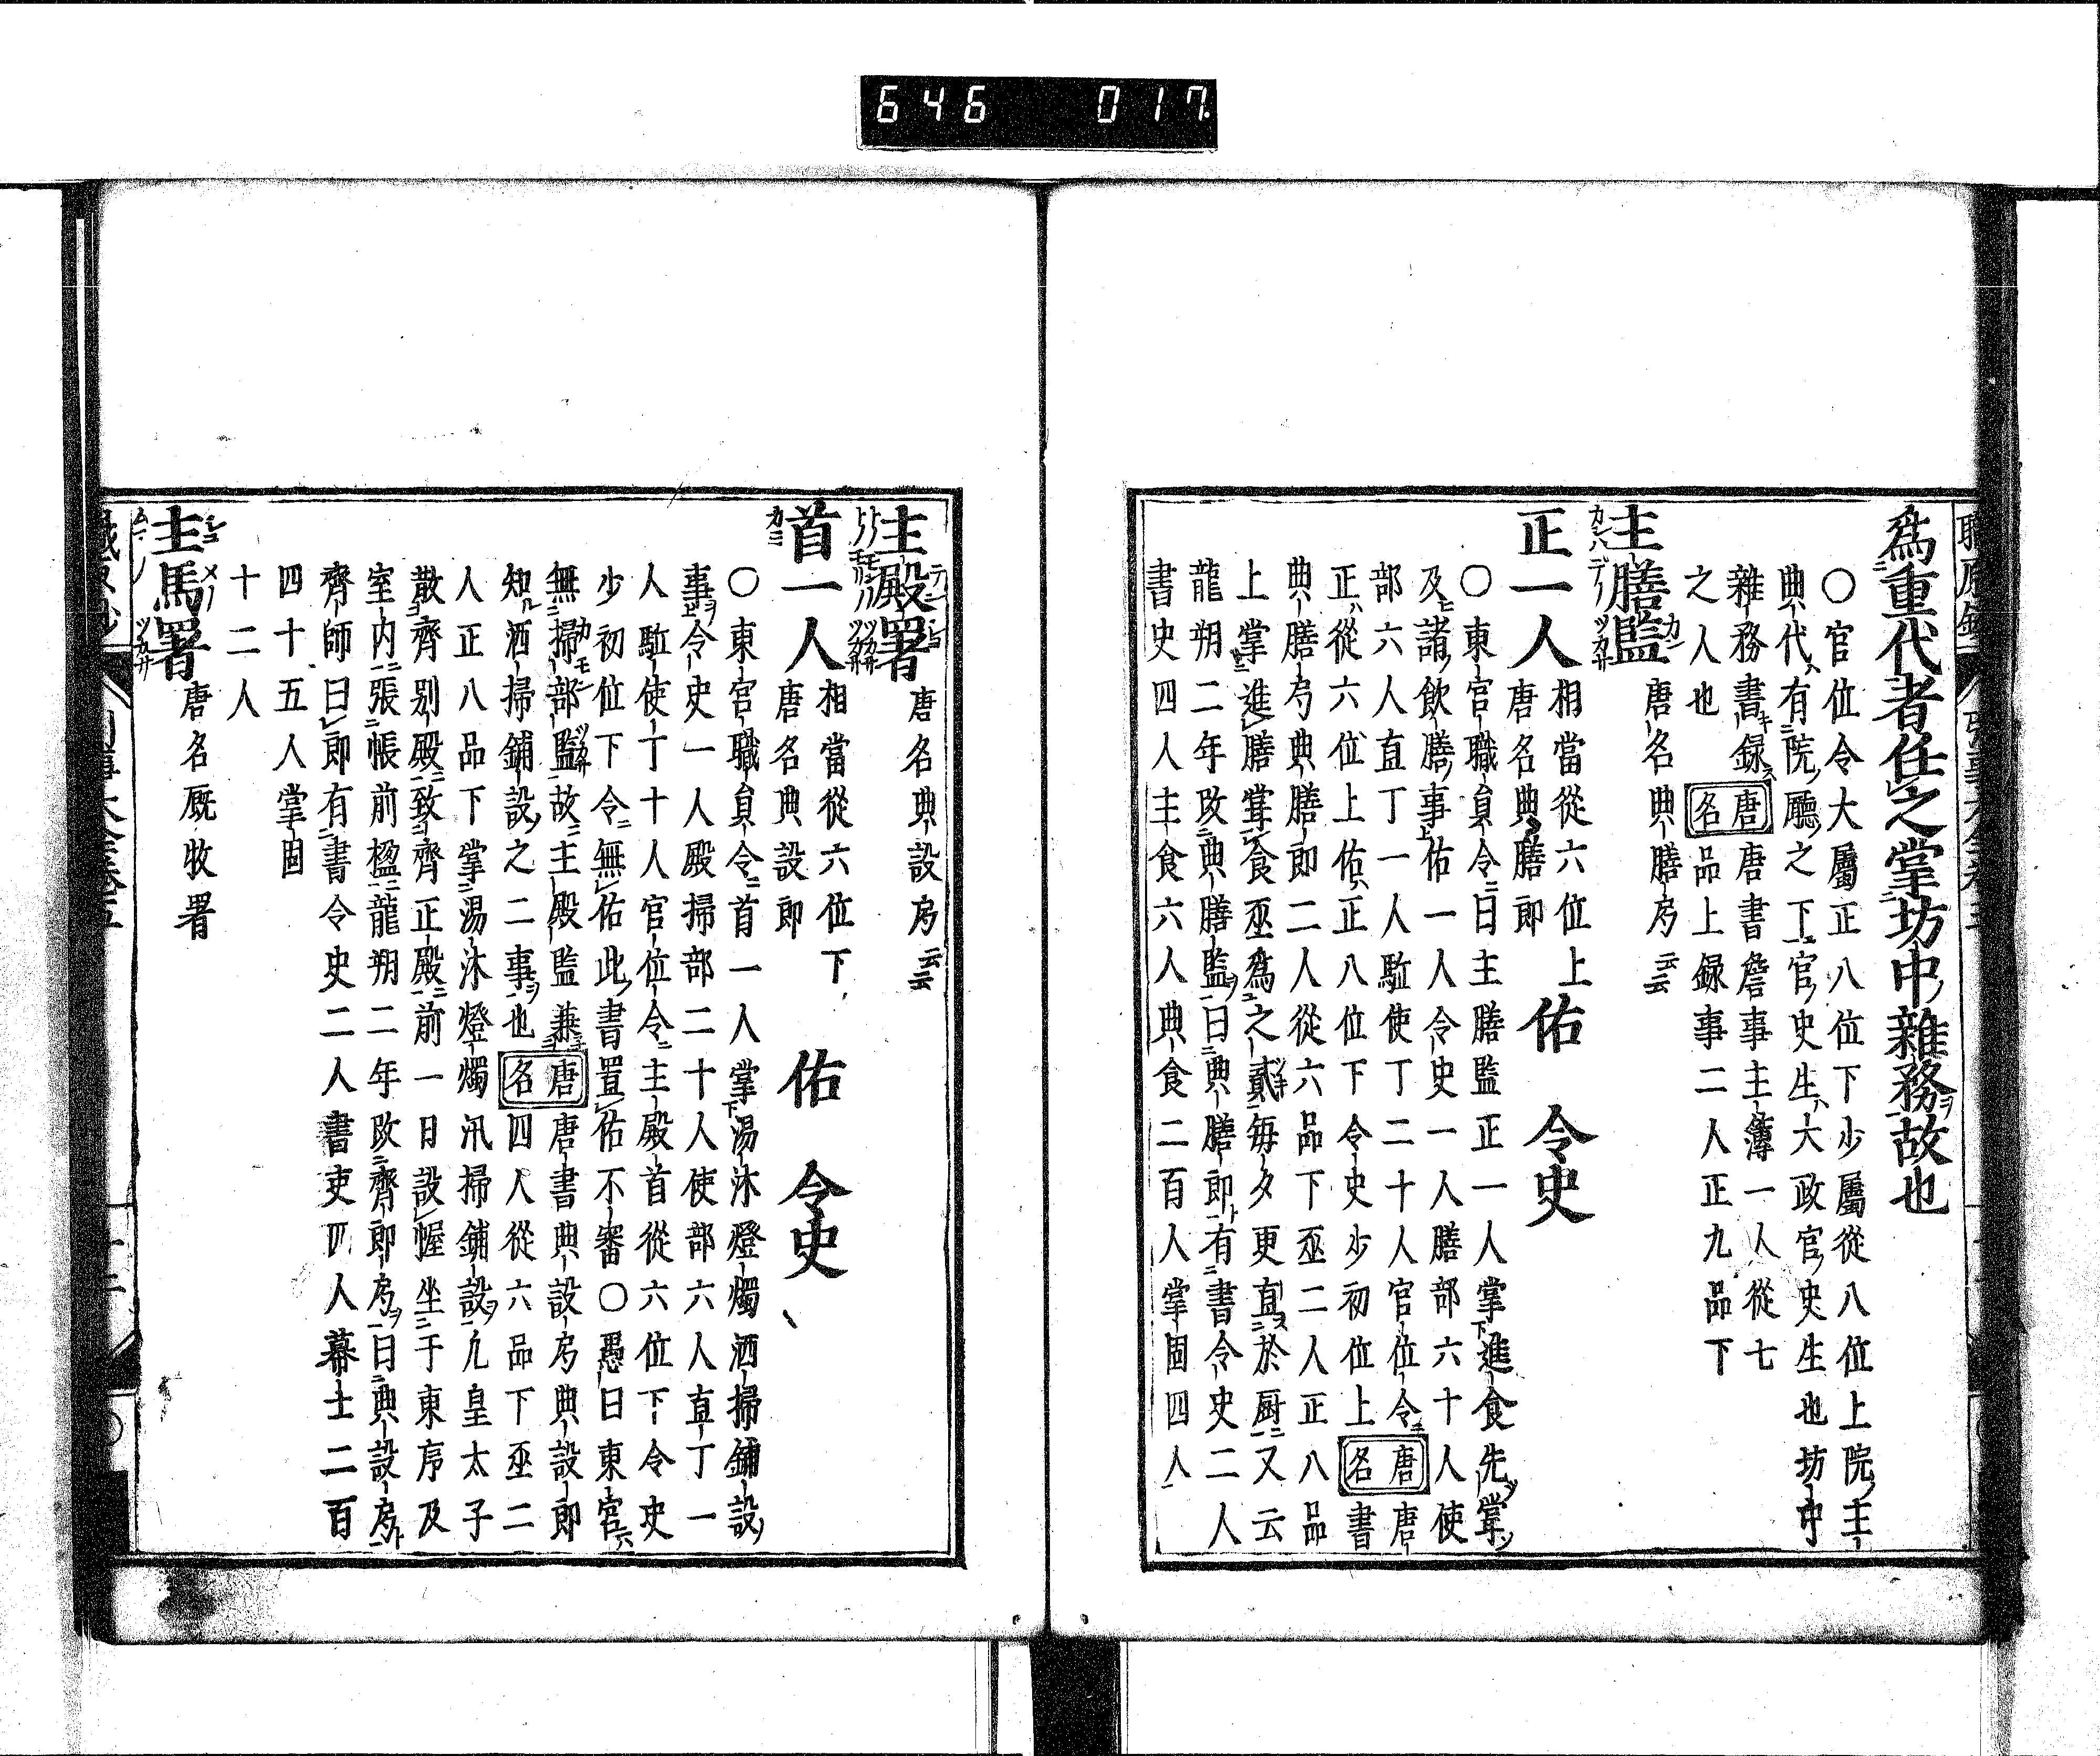 646 017
爲重代者任之掌坊中雜務故也
〇官位令大屬正八位下少屬從八位上院主
典代有院廳之下官史生大政官史生也坊中
雜務書録唐名唐書詹事主簿一人從七
之人也品上録事二人正九品下
主膳監唐名典膳房云云
正一人相當從六位上唐名典膳郎 佑 令史
〇東宮職員令曰主膳監正一人掌進食先甞
及諸飲膳事佑一人令史一人膳部六十人使
部六人直丁一人駈使丁二十人官位令唐名唐
正從六位上佑正八位下令史少初位上書
典膳房典膳郎二人從六品下丞二人正八品
上掌進膳甞食丞爲之貳每夕更直於厨又云
龍朔二年改典膳監曰典膳郎有書令史二人
書史四人主食六人典食二百人掌固四人
主殿署唐名典設房云云
首一人相當從六位下唐名典設郎 佑 令史
〇東宮職員令首一人掌湯沐燈燭洒掃鋪設
事令史一人殿掃部二十人使部六人直丁一
人駈使丁十人官位令主殿首從六位下令史
少初位下令無佑此書置佑不審〇愚曰東宮
無掃部監故主殿監兼唐名唐書典設房典設郎
知洒掃鋪設之二事也四人從六品下丞二
人正八品下掌湯沐燈燭汛掃鋪設凢皇太子
散齊別殿致齊正殿前一日設幄坐于東序及
室内張帳前楹龍朔二年改齊郎房曰典設房
齊師曰郎有書令史二人書吏四人幕士二百
四十五人掌固
十二人
主馬署唐名厩牧署